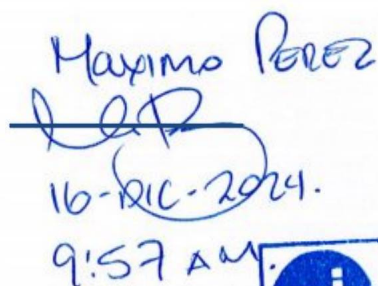 Maximo PEREZ
16-DIC-2024.
9:57 AM.
i